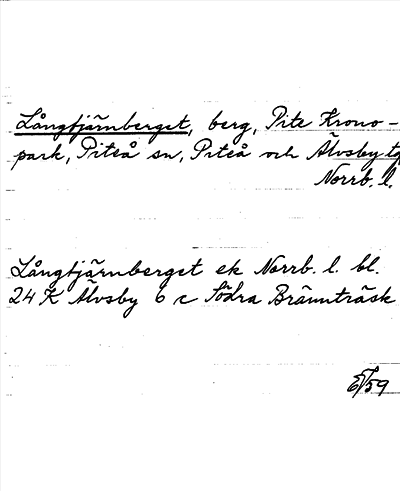 Långtjärnberget, berg, Pite Krono-
park, Piteå sn, Piteå och Älvsby tg
Norrb. l.
Långtjärnberget ek Norrb. l. bl.
24 K Älvsby 6 c Södra Brännträsk